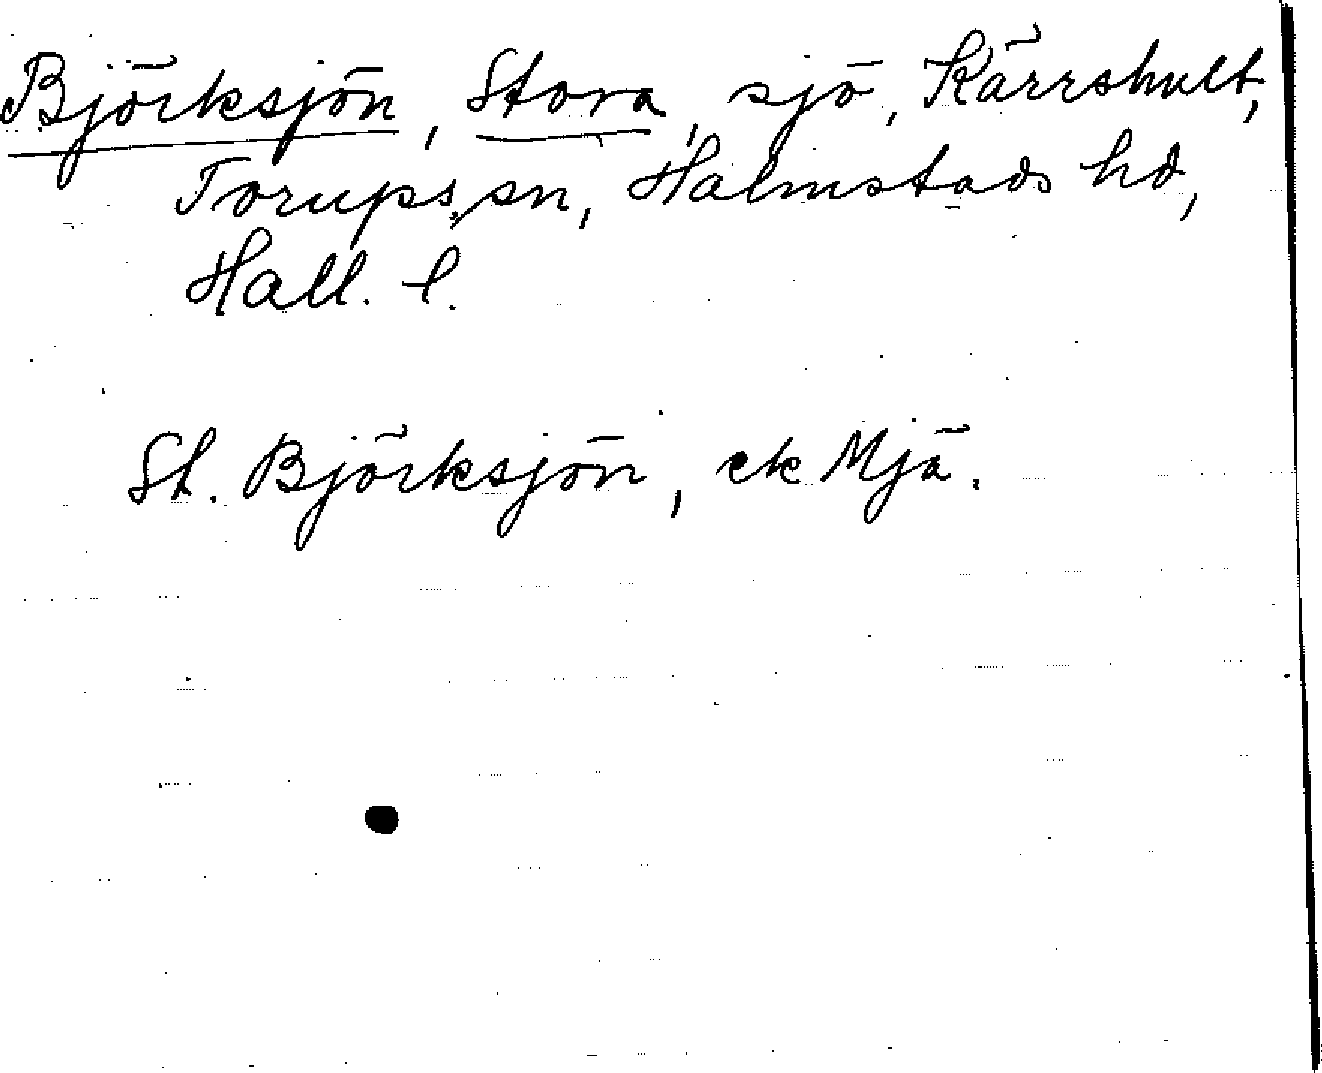 Björksjön, Stora, sjö, Kärrshult,
Torups sn, Halmstads hd,
Hall. l.
St. Björksjön, ek Mjä.